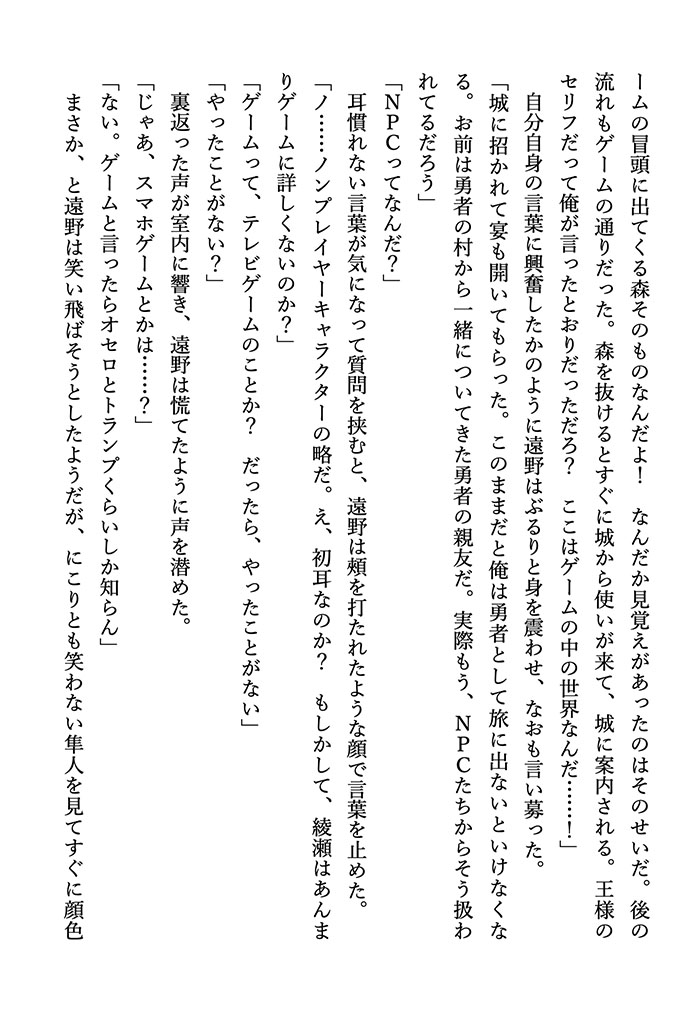 ームの冒頭に出てくる森そのものなんだよ！　なんだか見覚えがあったのはそのせいだ。後の
流れもゲームの通りだった。森を抜けるとすぐに城から使いが来て、城に案内される。王様の
セリフだって俺が言ったとおりだっただろ？　ここはゲームの中の世界なんだ……！」
　自分自身の言葉に興奮したかのように遠野はぶるりと身を震わせ、なおも言い募った。
「城に招かれて宴も開いてもらった。このままだと俺は勇者として旅に出ないといけなくな
る。お前は勇者の村から一緒についてきた勇者の親友だ。実際もう、ＮＰＣたちからそう扱わ
れてるだろう」
「ＮＰＣってなんだ？」
　耳慣れない言葉が気になって質問を挟むと、遠野は頰を打たれたような顔で言葉を止めた。
「ノ……ノンプレイヤーキャラクターの略だ。え、初耳なのか？　もしかして、綾瀬はあんま
りゲームに詳しくないのか？」
「ゲームって、テレビゲームのことか？　だったら、やったことがない」
「やったことがない？」
　裏返った声が室内に響き、遠野は慌てたように声を潜めた。
「じゃあ、スマホゲームとかは……？」
「ない。ゲームと言ったらオセロとトランプくらいしか知らん」
　まさか、と遠野は笑い飛ばそうとしたようだが、にこりとも笑わない隼人を見てすぐに顔色